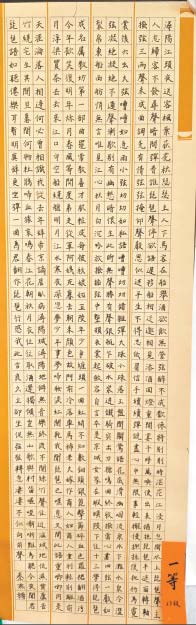 潯陽江頭夜送客楓葉荻花秋瑟瑟主人下馬客在船舉酒欲飲無管弦醉不成歡慘將別別時茫茫江浸月忽聞水上琵琶聲主
人忘歸客不發尋聲暗問彈者誰琵琶聲停欲語遲移船相近邀相見添酒回燈重開宴千呼萬喚始出來猶抱琵琶半遮面轉軸
撥弦三兩聲未成曲調先有情弦弦掩抑聲聲思似訴平生不得志低眉信手續續彈說盡心中無限事輕攏慢撚抹復挑初為霓
裳後六幺大弦嘈嘈如急雨小弦切切如私語嘈嘈切切錯雜彈大珠小珠落玉盤間關鶯語花底滑幽咽泉流冰下難冰泉冷澀
弦凝絕凝絕不通聲暫歇別有幽愁暗恨生此時無聲勝有聲銀瓶乍破水漿迸鐵騎突出刀槍鳴曲終收撥當心畫四弦一聲如
裂帛東船西舫悄無言唯見江心秋月白沉吟放撥插弦中整頓衣裳起斂容自言本是京城女家在蝦蟆陵下住十三學得琵琶
成名屬教坊第一部曲罷曾教善才服妝成每被秋娘妒五陵年少爭纏頭一曲紅綃不知數鈿頭銀篦擊節碎血色羅裙翻酒污
今年歡笑復明年秋月春風等閒度弟走從軍阿姨死暮去朝來顏色故門前冷落鞍馬稀老大嫁作商人婦商人重利輕別離前
月浮梁買茶去去來江口守空船繞船月明江水寒夜深忽夢少年事夢啼妝淚紅闌干我聞琵琶已嘆息又聞此語重唧唧同是
天涯淪落人相逢何必曾相識我從去年辭帝京謫居臥病潯陽城潯陽地僻無音樂終歲不聞絲竹聲住近湓江地低濕黃蘆苦
竹繞宅生其間旦暮聞何物杜鵑啼血猿哀鳴春江花朝秋月夜往往取酒還獨傾豈無山歌與村笛嘔啞嘲哳難為聽今夜聞君
琵琶語如聽仙樂耳暫明莫辭更坐彈一曲為君翻作琵琶行感我此言良久立卻坐促弦弦轉急淒淒不似向前聲
一等